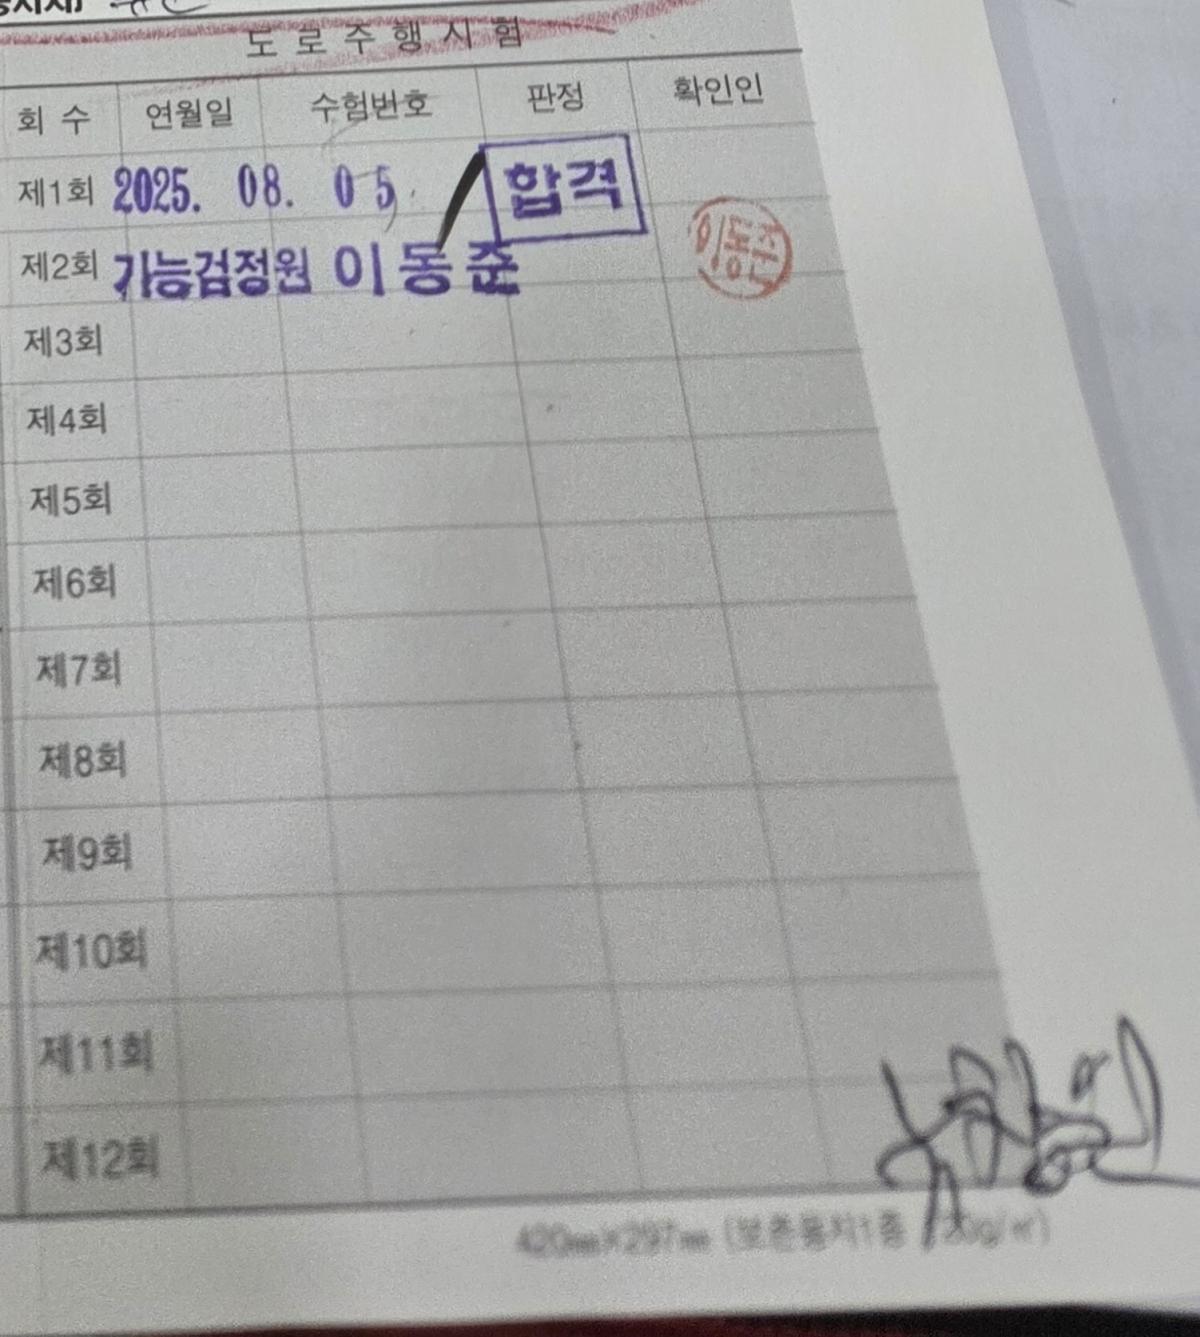 도로주행시험
회 수 연월일 수험번호 판정 확인인
제1회 2025. 08. 05. 합격
제2회 기능검정원 이동준 이동준
제3회
제4회
제5회
제6회
제7회
제8회
제9회
제10회
제11회
제12회
420㎜×297㎜ (보존용지1종 120g/㎡)